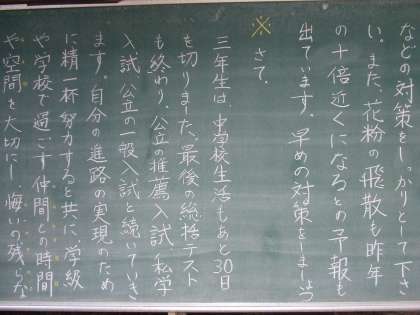 などの対策をしっかりとって下さ
い。また、花粉の飛散も昨年
の十倍近くになるとの予報も
出ています。早めの対策をしましょう
※さて、
三年生は、中学校生活もあと30日
を切りました。最後の総括テスト
も終わり、公立の推薦入試、私学
入試、公立の一般入試と続いていき
ます。自分の進路の実現のため
に精一杯努力すると共に、学級
や学校で過ごす仲間との時間
や空間を大切にし、悔いの残らな